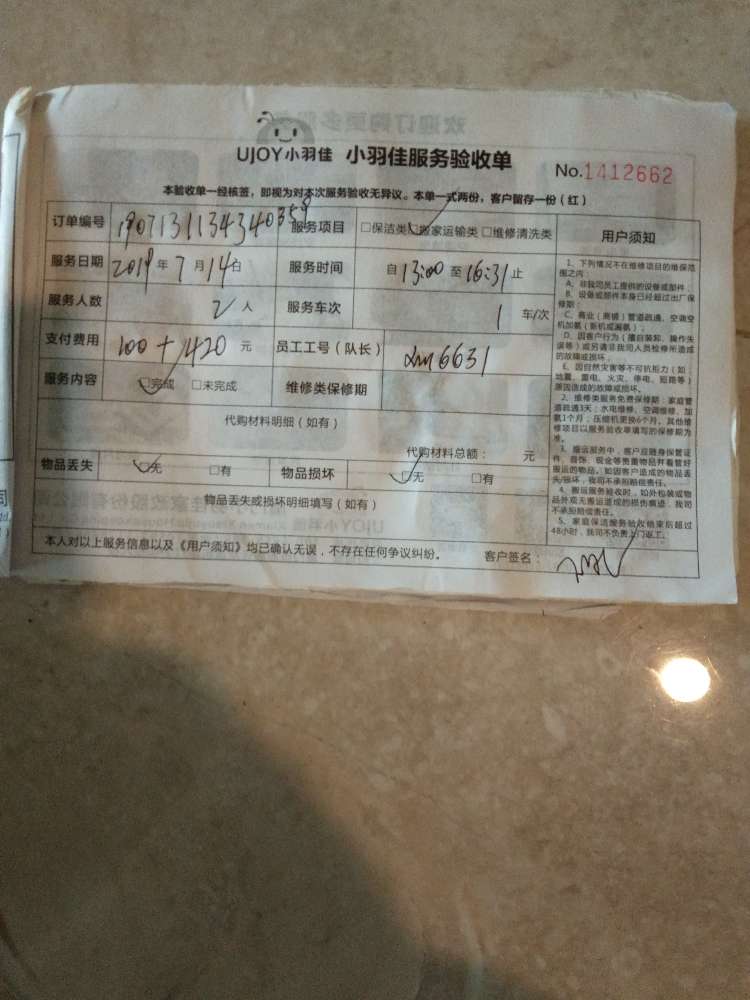 UJOY小羽佳 小羽佳服务验收单 No.1412662
本验收单一经核签，即视为对本次服务验收无异议。本单一式两份，客户留存一份（红）
订单编号 1907131134340359 服务项目 □保洁类 □搬家运输类 □维修清洗类
服务日期 2019年7月14日 服务时间 自13:00至16:31止
服务人数 2人 服务车次 1 车/次
支付费用 100+420 元 员工工号（队长） xm6631
服务内容 □完成 □未完成 维修类保修期
代购材料明细（如有）
代购材料总额： 元
物品丢失 □无 □有 物品损坏 □无 □有
物品丢失或损坏明细填写（如有）
本人对以上服务信息以及《用户须知》均已确认无误，不存在任何争议纠纷。 客户签名：
用户须知
1、下列情况不在维修项目的维保范
围之内：
A、非我司员工提供的设备或部件；
B、设备或部件本身已经超过出厂保
修期；
C、商业（商铺）管道疏通、空调空
机加氨（新机或漏氨）；
D、因客户行为（擅自装卸、操作失
误等）或另请非我司人员检修所造成
的故障或损坏。
E、因自然灾害等不可抗拒力（如：
地震、雷电、火灾、停电、短路等）
原因造成的故障或损坏。
2、维修类服务免费保修期：家庭管
道疏通3天；水电维修、空调维修、加
氨1个月；压缩机更换6个月。其他维
修项目以服务验收单填写的保修期为
准。
3、搬运服务中，客户应随身保管证
件、首饰、现金等贵重物品并看管好
搬运的物品。如因客户造成的物品丢
失/损坏，我司不承担赔偿责任。
4、搬运服务验收时，如外包装或物
品外观无搬运造成的损伤痕迹，我司
不承担赔偿责任。
5、家庭保洁服务验收结束后超过
48小时，我司不负责上门返工。